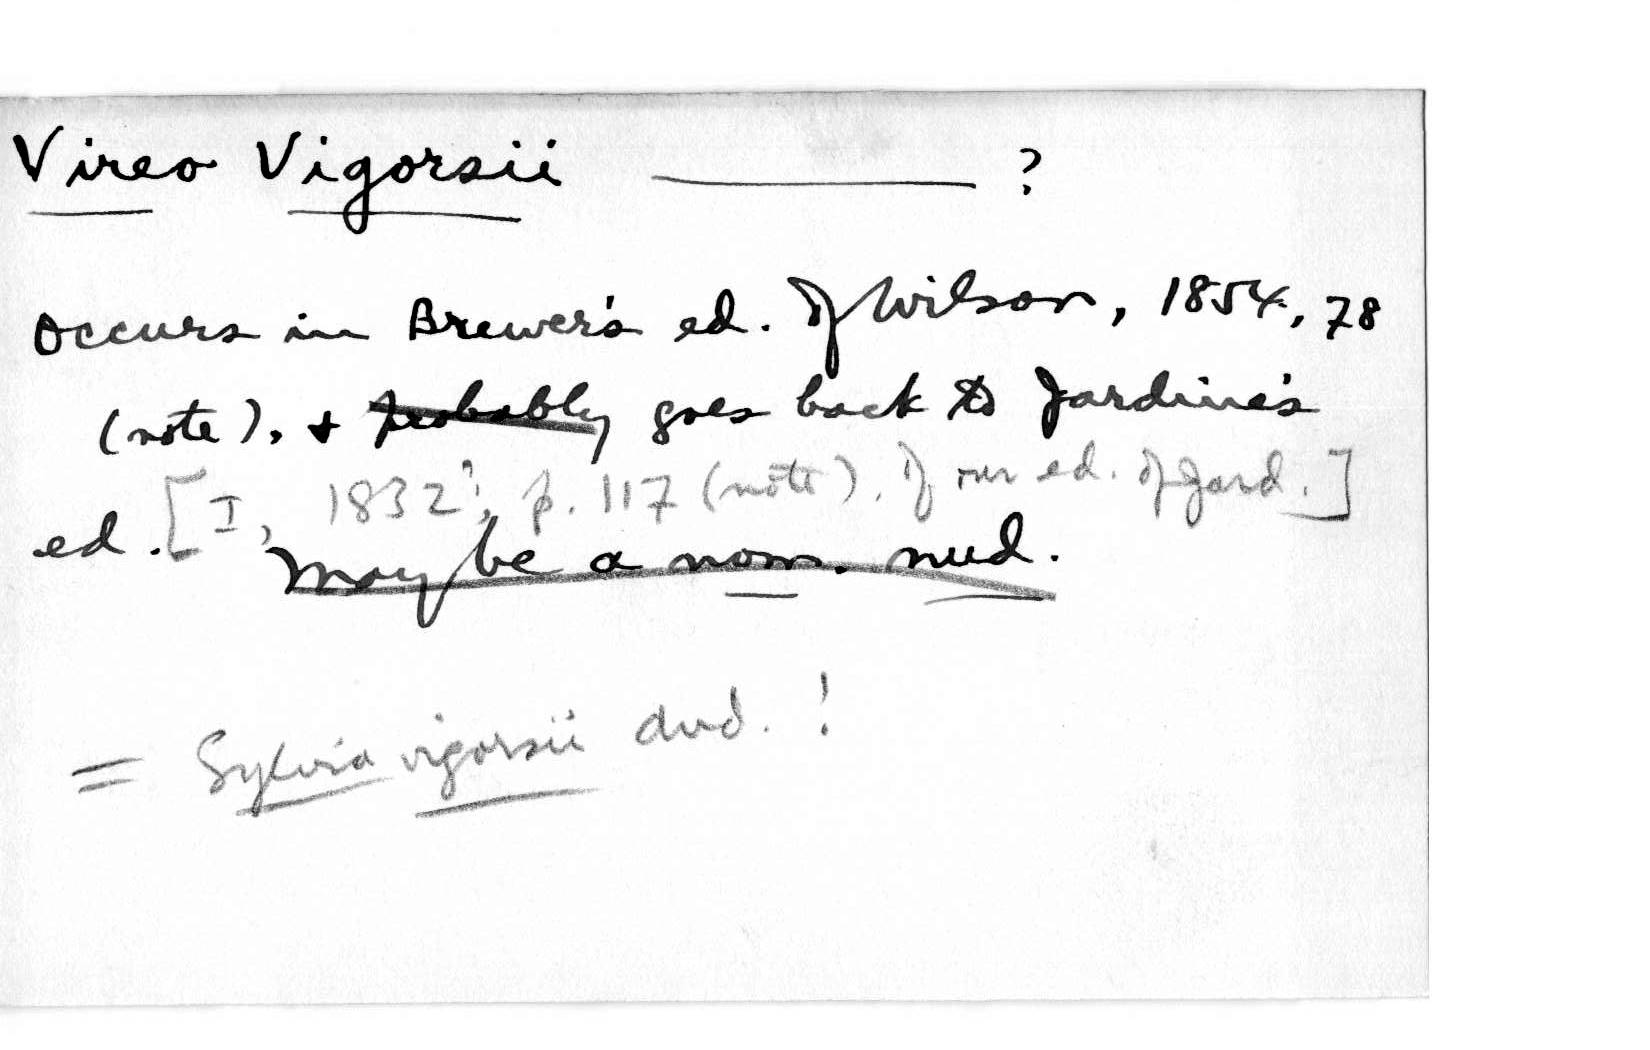 Vireo Vigorsii ———— ?
Occurs in Brewer's ed. of Wilson, 1854, 78
(note), + probably goes back to Jardine's
ed. [I, 1832; p. 117 (note). of our ed. of Jard.]
may be a nom. nud.
= Sylvia vigorsii Aud. !